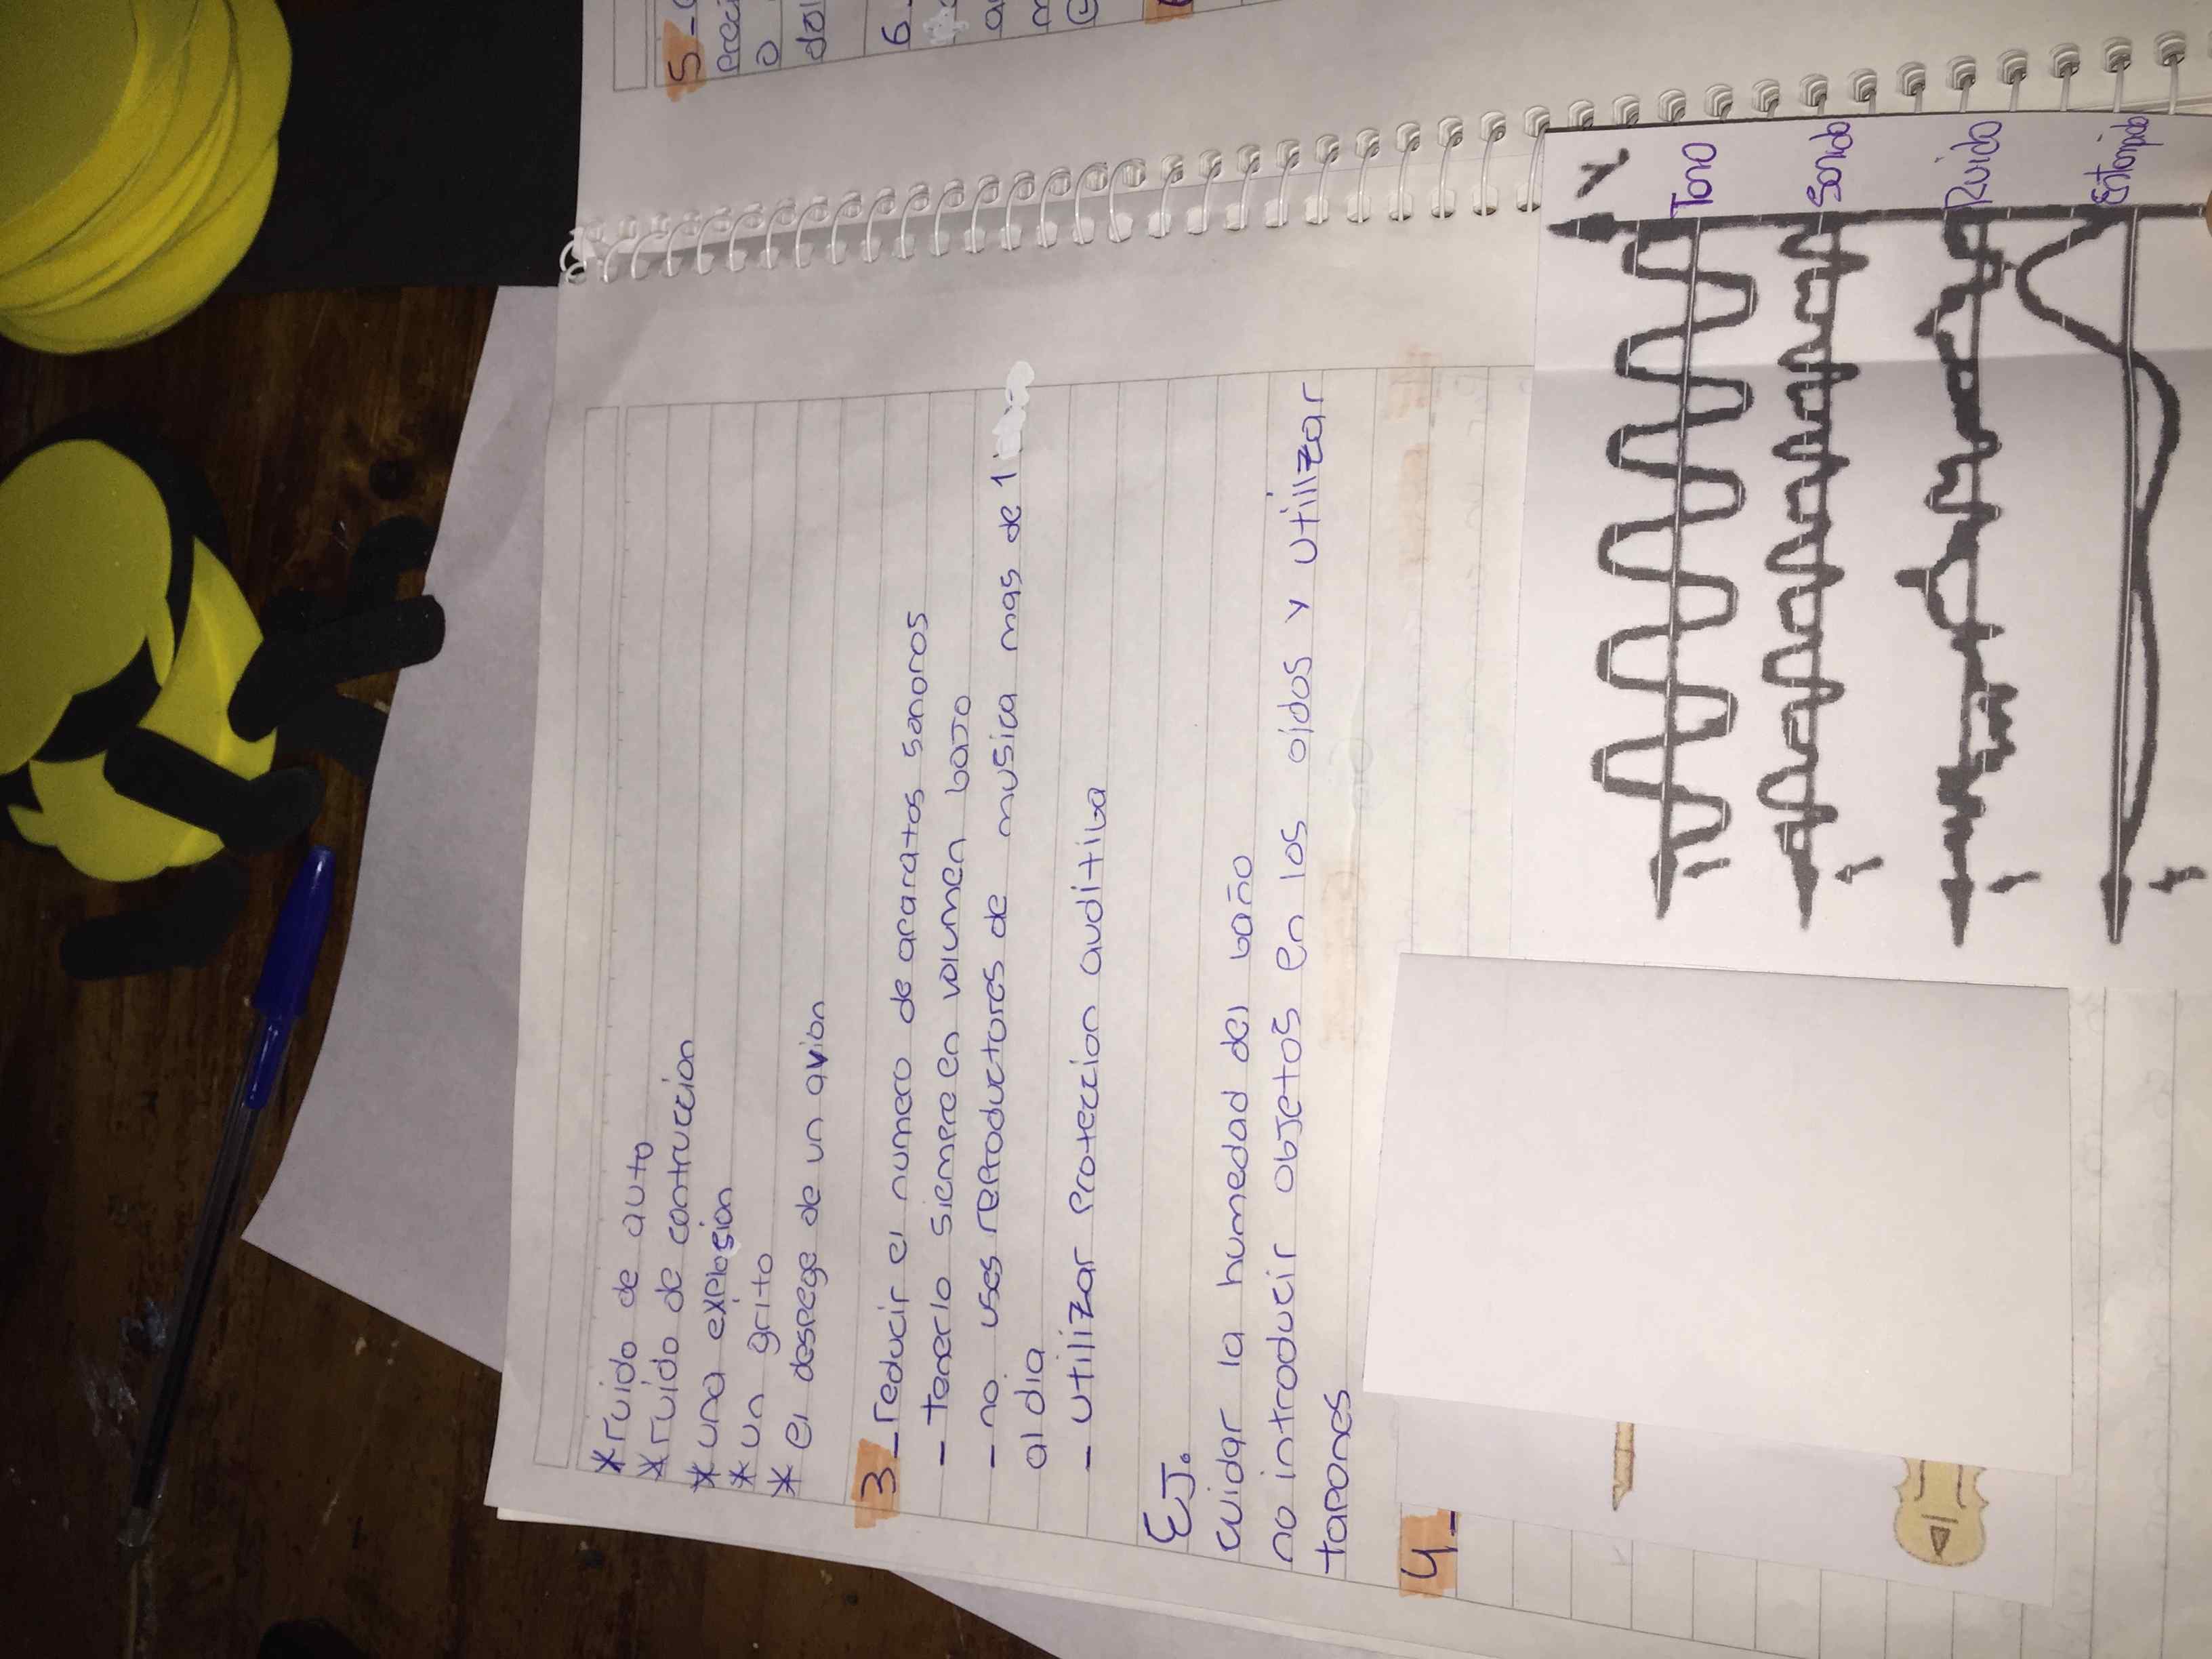 * ruido de auto
* ruido de contruccion
* una explosion
* un grito
* el despege de un avion
3_ reducir el numero de aparatos sonoros
- tenerlo siempre en volumen bajo
- no uses reproductores de musica mas de 1
al dia
- utilizar proteccion auditiba
EJ.
cuidar la humedad del baño
no introducir objetos en los oidos y utilizar
tapones
4_
Y
Tono
Sonido
Ruido
Estampido
t
t
t
5_
6_